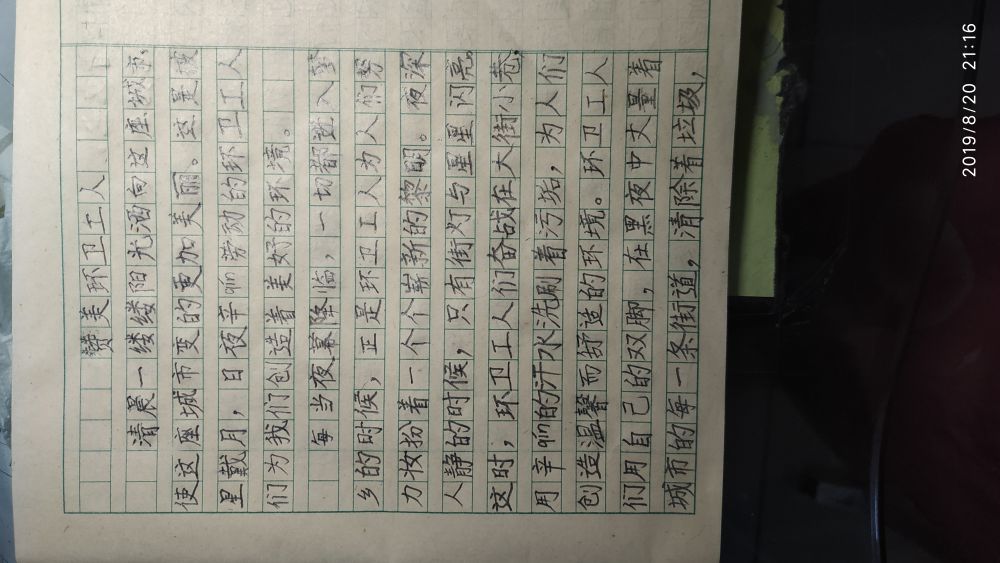 赞美环卫工人
清晨一缕缕阳光洒向这座城市,
使这座城市变的更加美丽。这是披
星戴月,日夜辛qin劳动的环卫工人
们为我们创造着美好的环境。
每当夜幕降临,一切都进入梦
乡的时候,正是环卫工人为人们努
力妆扮着一个个崭新的黎明。夜深
人静的时候,只有街灯与星星闪亮。
这时,环卫工人们奋战在大街小巷,
用辛qin的汗水洗刷着污垢,为人们
创造温馨而舒适的环境。环卫工人
们用自己的双脚,在黑夜中丈量着
城市的每一条街道,清除着垃圾,
2019/8/20 21:16